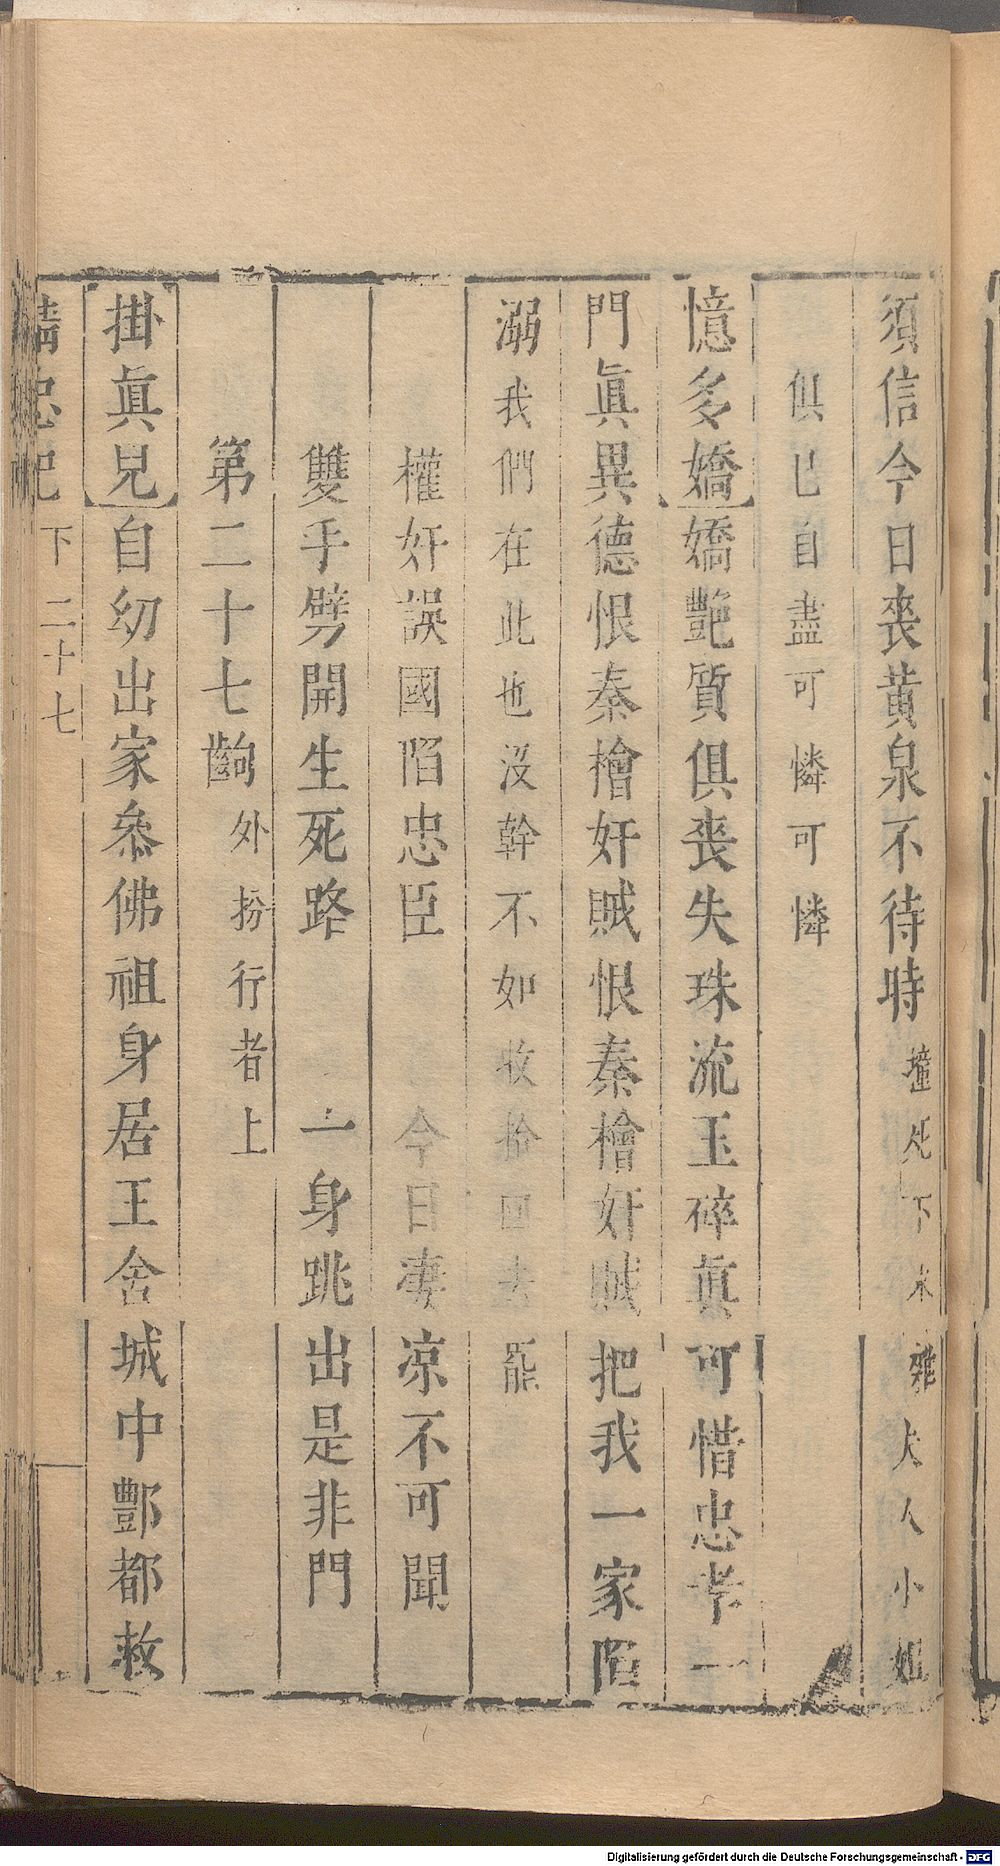 須信今日喪黃泉不待時撞死下末雜夫人小姐
俱已自盡可憐可憐
憶多嬌嬌艷質俱喪失珠流玉碎眞可惜忠孝一
門眞異德恨秦檜奸賊恨秦檜奸賊把我一家陷
溺我們在此也沒幹不如收拾回去罷
權奸誤國陷忠臣 今日凄凉不可聞
雙手劈開生死路 一身跳出是非門
第二十七齣外扮行者上
掛眞兒自幼出家叅佛祖身居王舍城中酆都救
精忠記 下 二十七
Digitalisierung gefördert durch die Deutsche Forschungsgemeinschaft - DFG